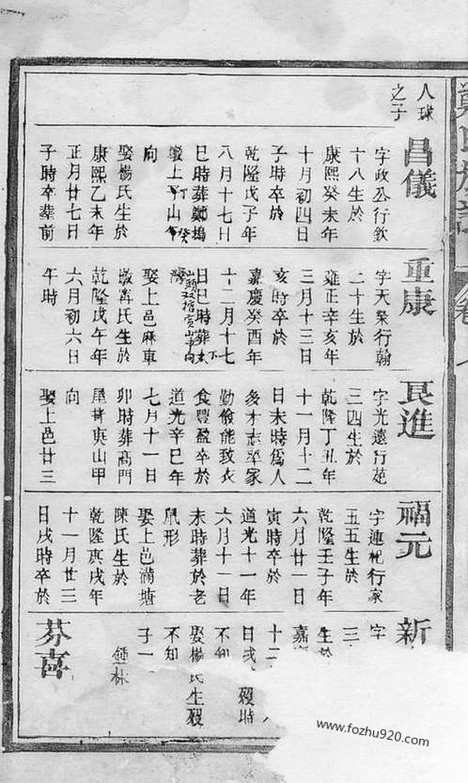 人球
之子
昌儀
字政公行欽
十八生於
康熙癸未年
十月初四日
子時卒於
乾隆戊子年
八月十七日
巳時葬鄭塢
嶺上 山癸
向
娶楊氏生於
康熙乙未年
正月廿七日
子時卒葬前
重康
字天榮行翰
二十生於
雍正辛亥年
三月十三日
亥時卒於
嘉慶癸酉年
十二月十七
日巳時葬
娶上邑麻車
氏生於
乾隆戊午年
六月初六日
午時
良進
字光遠行苑
三四生於
乾隆丁丑年
十一月十二
日未時為人
多才志卒家
勤儉能致衣
食豐盈卒於
道光辛巳年
七月十一日
卯時葬高門
尾 庚山甲
向
娶上邑廿三
福元
字連 行家
五五生於
乾隆壬子年
六月廿一日
寅時卒於
道光十一年
六月十一日
未時葬於老
鼠形
娶上邑滿塘
陳氏生於
乾隆庚戌年
十一月廿三
日戌時卒於
新
字
三
生於
嘉
十二
日戌 歿時
不知
娶楊氏生歿
不知
子一
鍾林
芬喜
www.fozhu920.com